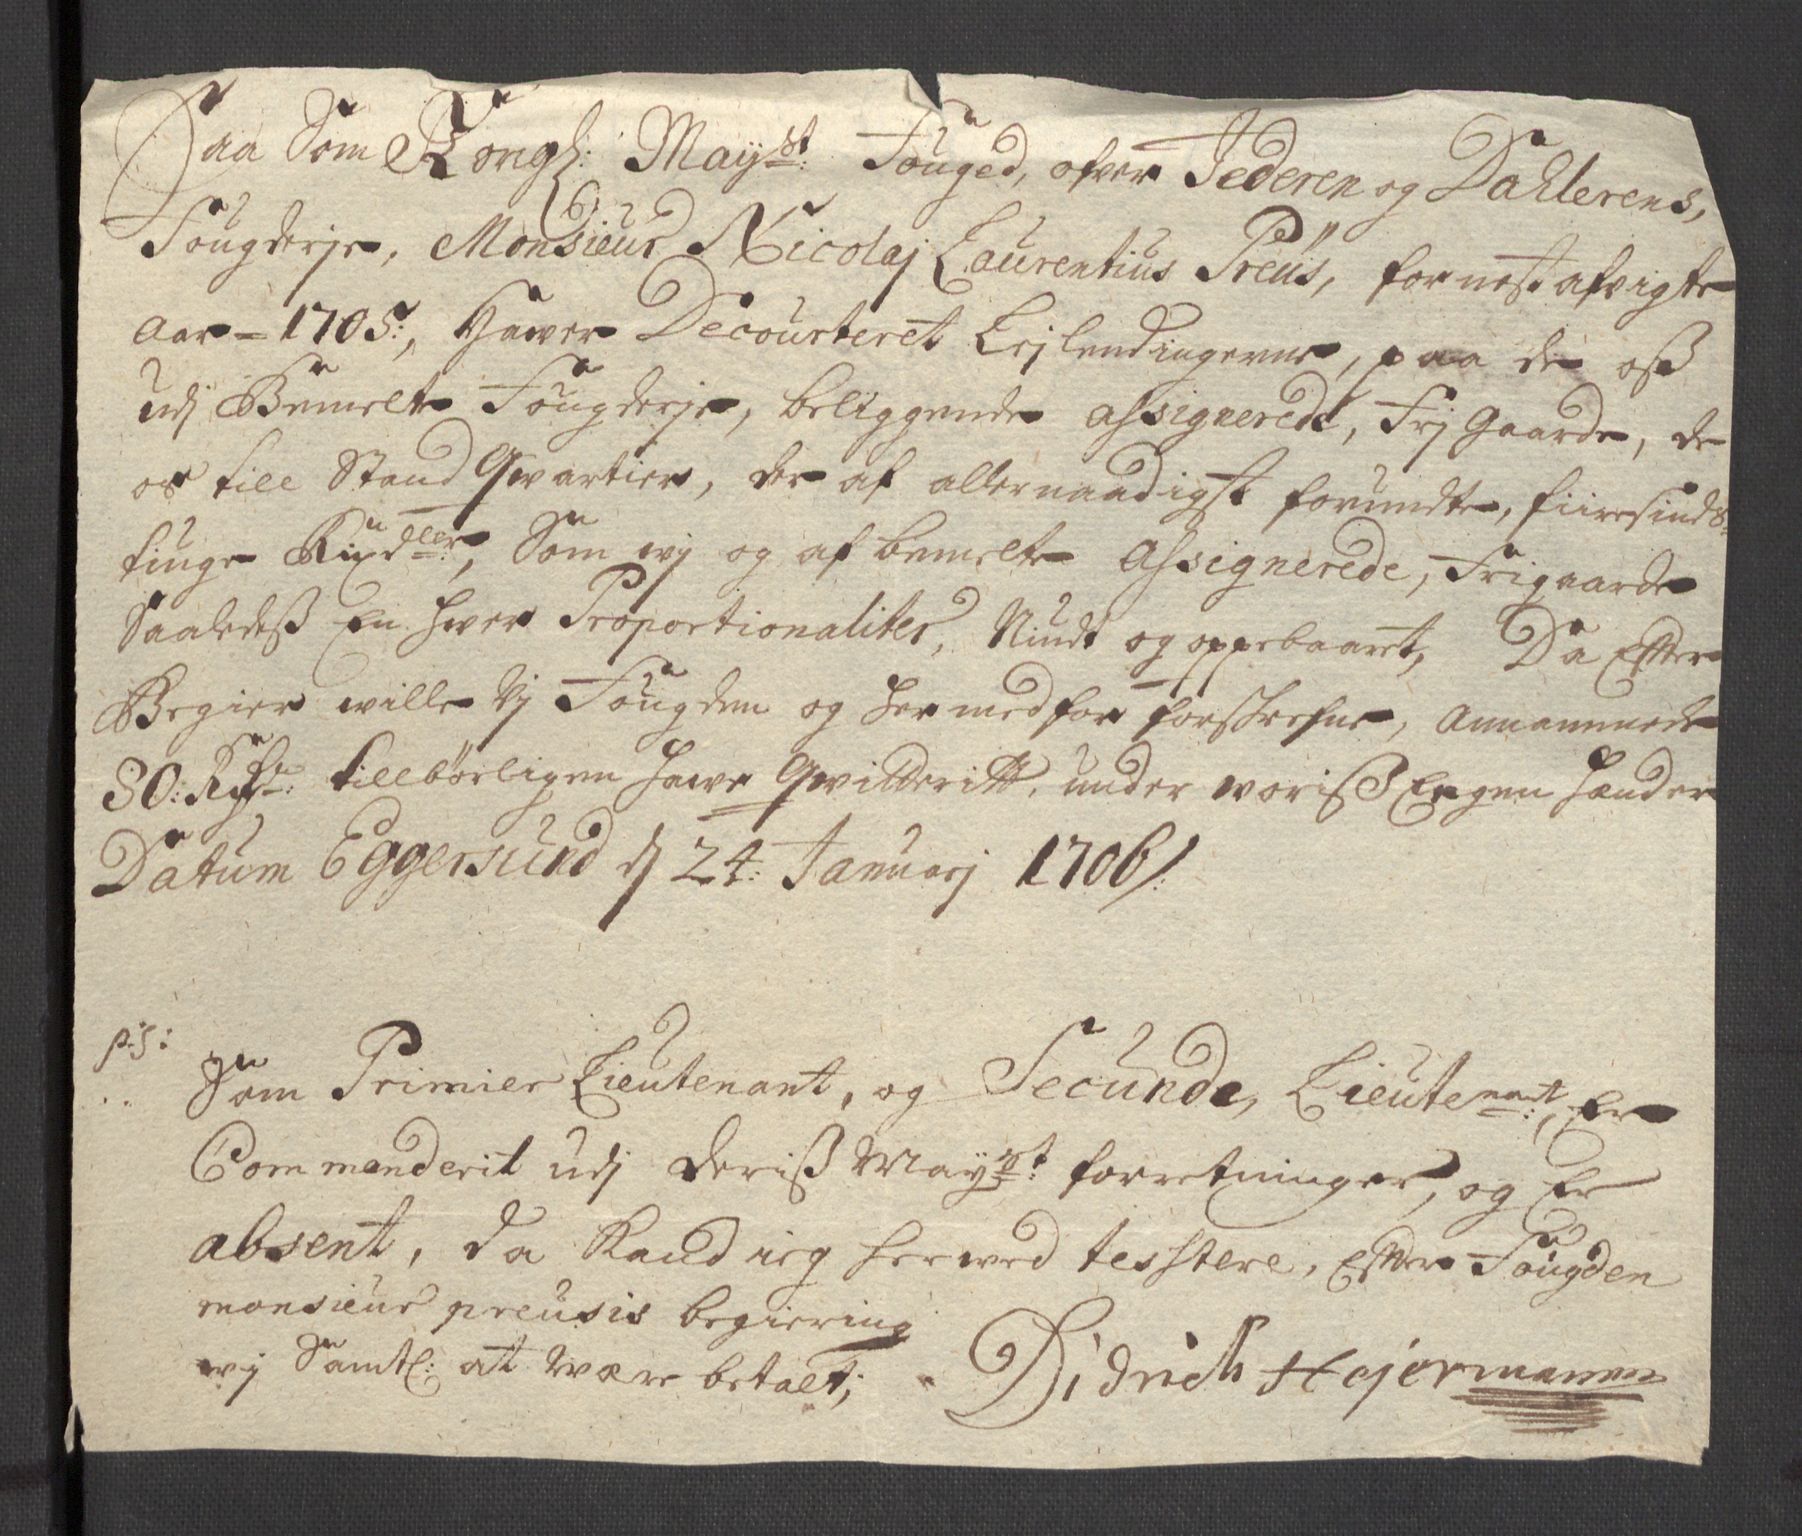 Saa Som Kongl: Mayst: Fouged, ofver Jederen og Dahlerens,
Fougderje, Monsieur Nicolaj Laurentius Preüs, for nest afvigte
Aar = 1705:, Hawer Decourteret Lejlendingerne, paa de oss
udj Bemelte Fougderje, beliggende assignerede, Frj Gaarde, de
os till Stand Qwartier, der af allernaadigst forundte, fiiresinds-
tiuge Rixdler, Som wj og af bemelte Assignerede, Frigaarde
Saaledess En hver Proportionaliter, Niudt og oppebaaret, Da Efter
Begier wille Vj Fougden og her med for forschrefne, Annammede
80: Rixdr: tillbörligen hawe Qwitterit, under woriss Eegen hænder
Datum Eggersund dj 24: Januarj 1706/:
p:S:
Som Primier Lieutenant, og Secunde, Lieutenant:, Er
Commanderit udj Deriss Mayst: forretninger, og Er
absent, da Kand ieg herwed testere, Efter Fougden
monsieur preusis begiering
wj Samtl: at Være betalt;
Didrich Hejermannn